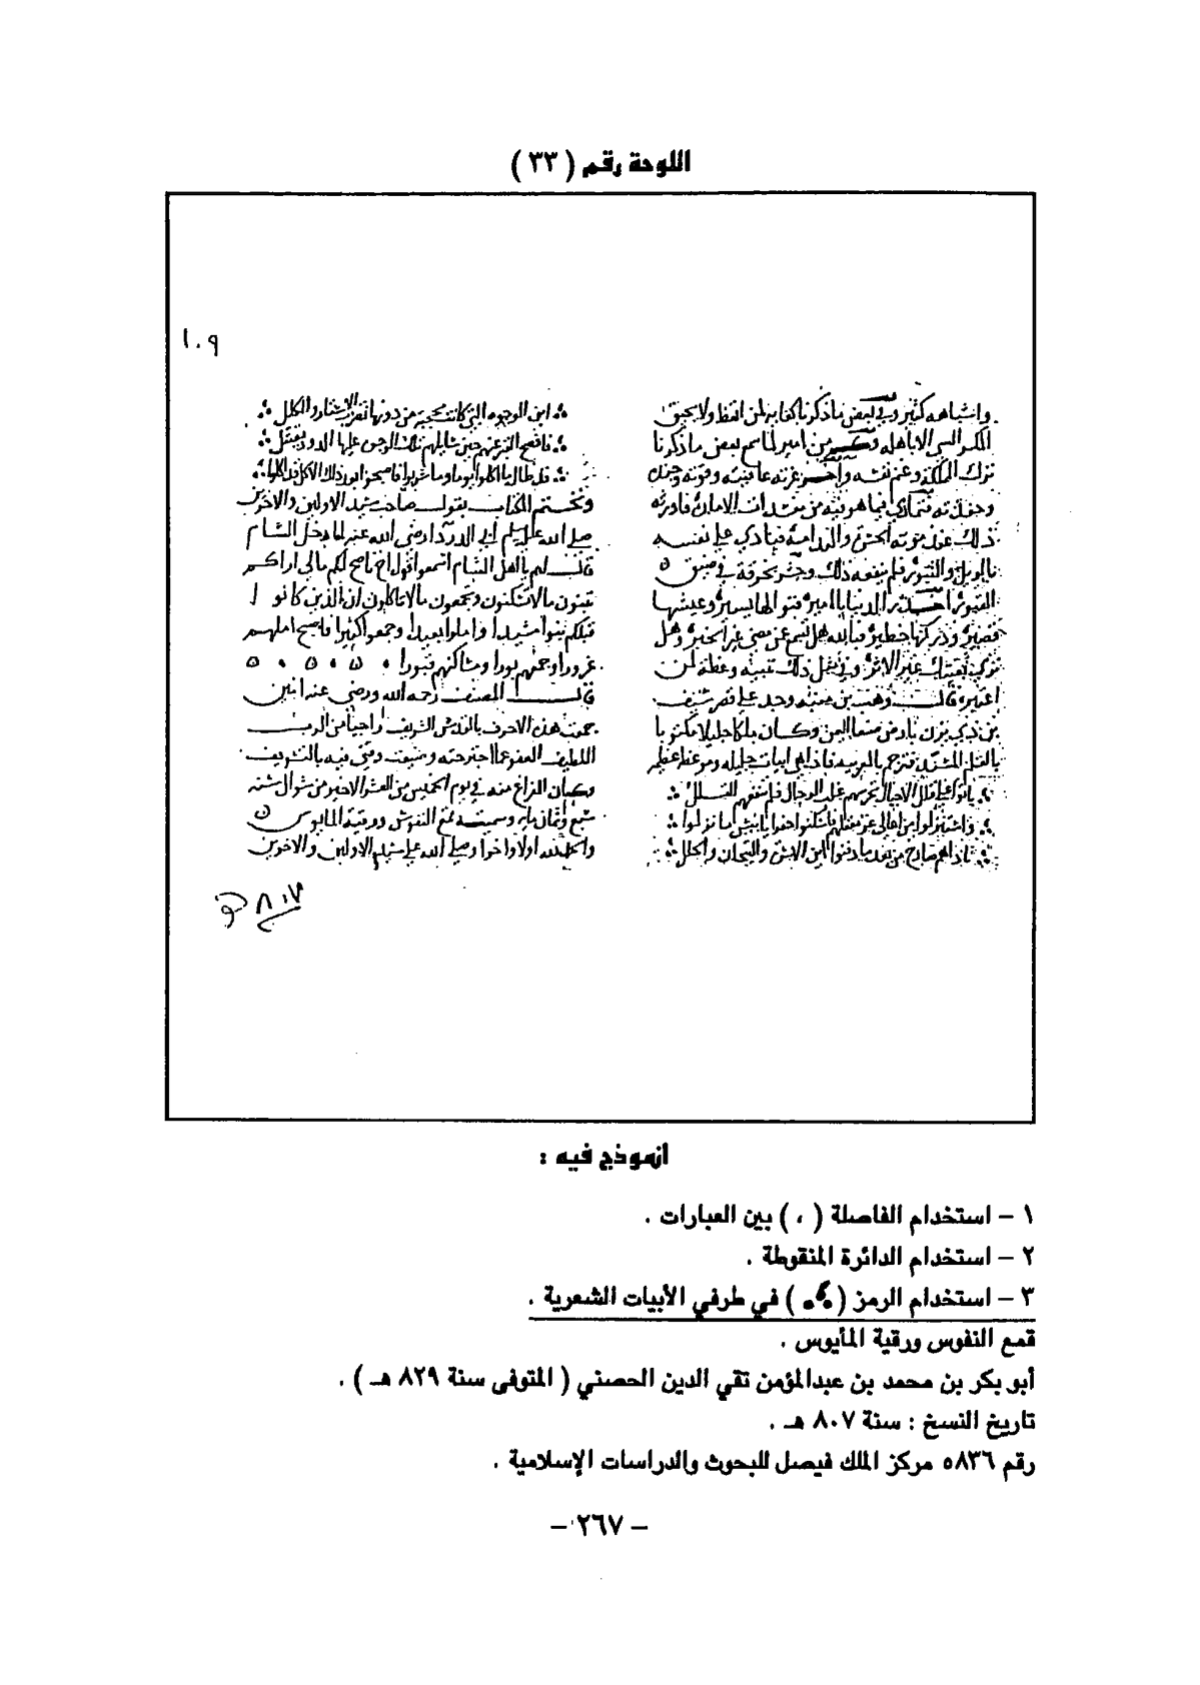 اللوحة رقم ( ٣٣ )
واشباهه كثير وفي بعض ما ذكرنا كفاية لمن اتعظ ولا يحيق
المكر السيئ الا باهله وكم من امير لما سمع بعض ما ذكرنا
ترك المملكة وغنم نفسه وآخر غرته عافيته وقوته وجنده
وحفدته فتمادى فيما هو فيه من
ذلك عند موته الحسرة والندامة فينادي على نفسه
بالويل والثبور فلم ينفعه ذلك وحشر بحرقة في ضيق
القبور احذر الدنيا يا امير فتوالها يسير وعيشها
قصير وذكرها خطير فبالله هل تسمع عن مضى غير الخبر وهل
ترى بعينك غير الاثر وفي مثل ذلك تنبيه وعظة لمن
اعتبر قال وهب بن منبه وجد على قصر سيف
بن ذي يزن بارض صنعا اليمن وكان ملكا جليلا مكتوبا
بالقلم المسند فترجم بالعربية فاذا هي ابيات جليلة وموعظة عظيمة
باتوا على قلل الاجبال تحرسهم غلب الرجال فلم تنفعهم القلل
واستنزلوا من اعالي عز معقلهم فاسكنوا حفرا يا بئس ما نزلوا
ناداهم صارخ من بعد ما دفنوا اين الاسرة والتيجان والحلل
١٠٩
اين الوجوه التي كانت محجبة من دونها تضرب الاستار والكلل
فافصح القبر عنهم حين سايلهم تلك الوجوه عليها الدود يقتتل
قد طال ما اكلوا يوما وما شربوا فاصبحوا بعد ذلك الاكل قد اكلوا
ونختم الكتاب بقول صاحب سيد الاولين والاخرين
صلى الله عليه وسلم ابي الدرداء رضي الله عنه لما دخل الشام
قال لهم يا اهل الشام اسمعوا قول اخ ناصح لكم مالي اراكم
تبنون ما لا تسكنون وتجمعون ما لا تاكلون ان الذين كانوا
قبلكم بنوا مشيدا واملوا بعيدا وجمعوا كثيرا فاصبح املهم
غرورا وجمعهم بورا ومساكنهم قبورا
قال المصنف رحمه الله ورضي عنه امين
جمعت هذه الاحرف بالقدس الشريف راجيا من الرب
اللطيف العفو عما اجترحته وضيعت
وكان الفراغ منه في يوم الخميس من العشر الاخير من شوال سنة
سبع وثمان ماية وسميته قمع النفوس ورقية المايوس
والحمد لله اولا واخرا وصلى الله على سيد الاولين والاخرين
٨٠٧
انموذج فيه :
١ – استخدام الفاصلة ( ، ) بين العبارات .
٢ – استخدام الدائرة المنقوطة .
٣ – استخدام الرمز ( ) في طرفي الأبيات الشعرية .
قمع النفوس ورقية المأيوس .
أبو بكر بن محمد بن عبدالمؤمن تقي الدين الحصني ( المتوفى سنة ٨٢٩ هـ ) .
تاريخ النسخ : سنة ٨٠٧ هـ .
رقم ٥٨٣٦ مركز الملك فيصل للبحوث والدراسات الإسلامية .
– ٢٦٧ –